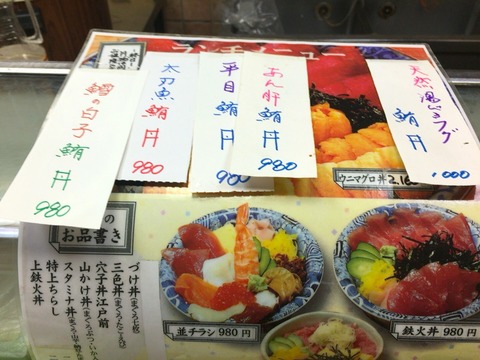 ランチメニュー
鱈の白子鮪丹
980
太刀魚鮪丹
980
平目鮪丹
980
あん肝鮪丹
980
天然
鮪丹
1,000
ウニマグロ丼
の
お品書き
づけ丼
三色丼
穴子丼江戸前
山かけ丼
スタミナ丼
特上ちらし
上鉄火丼
並チラシ 980円
鉄火丼 980円